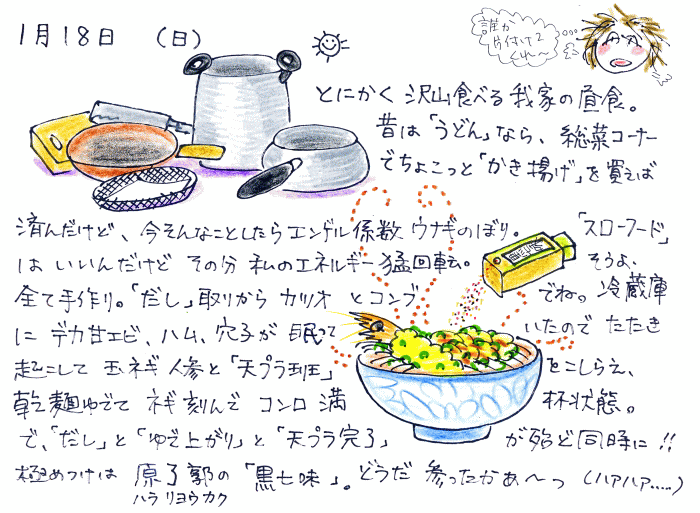 1月18日 (日)
誰か
片付けて
くれ〜
とにかく沢山食べる我家の昼食。
昔は「うどん」なら、総菜コーナー
でちょこっと「かき揚げ」を買えば
済んだけど、今そんなことしたらエンゲル係数ウナギのぼり。「スローフード」
はいいんだけどその分私のエネルギー猛回転。そうよ、
全て手作り。「だし」取りからカツオとコンブでね。冷蔵庫
にデカ甘エビ、ハム、穴子が眠っていたのでたたき
起こして玉ネギ人参と「天プラ班」をこしらえ、
乾麺ゆでてネギ刻んでコンロ満杯状態。
で、「だし」と「ゆで上がり」と「天プラ完了」が殆ど同時に!!
極めつけは原了郭の「黒七味」。どうだ参ったかぁ〜っ (ハァハァ.....)
ハラリョウカク